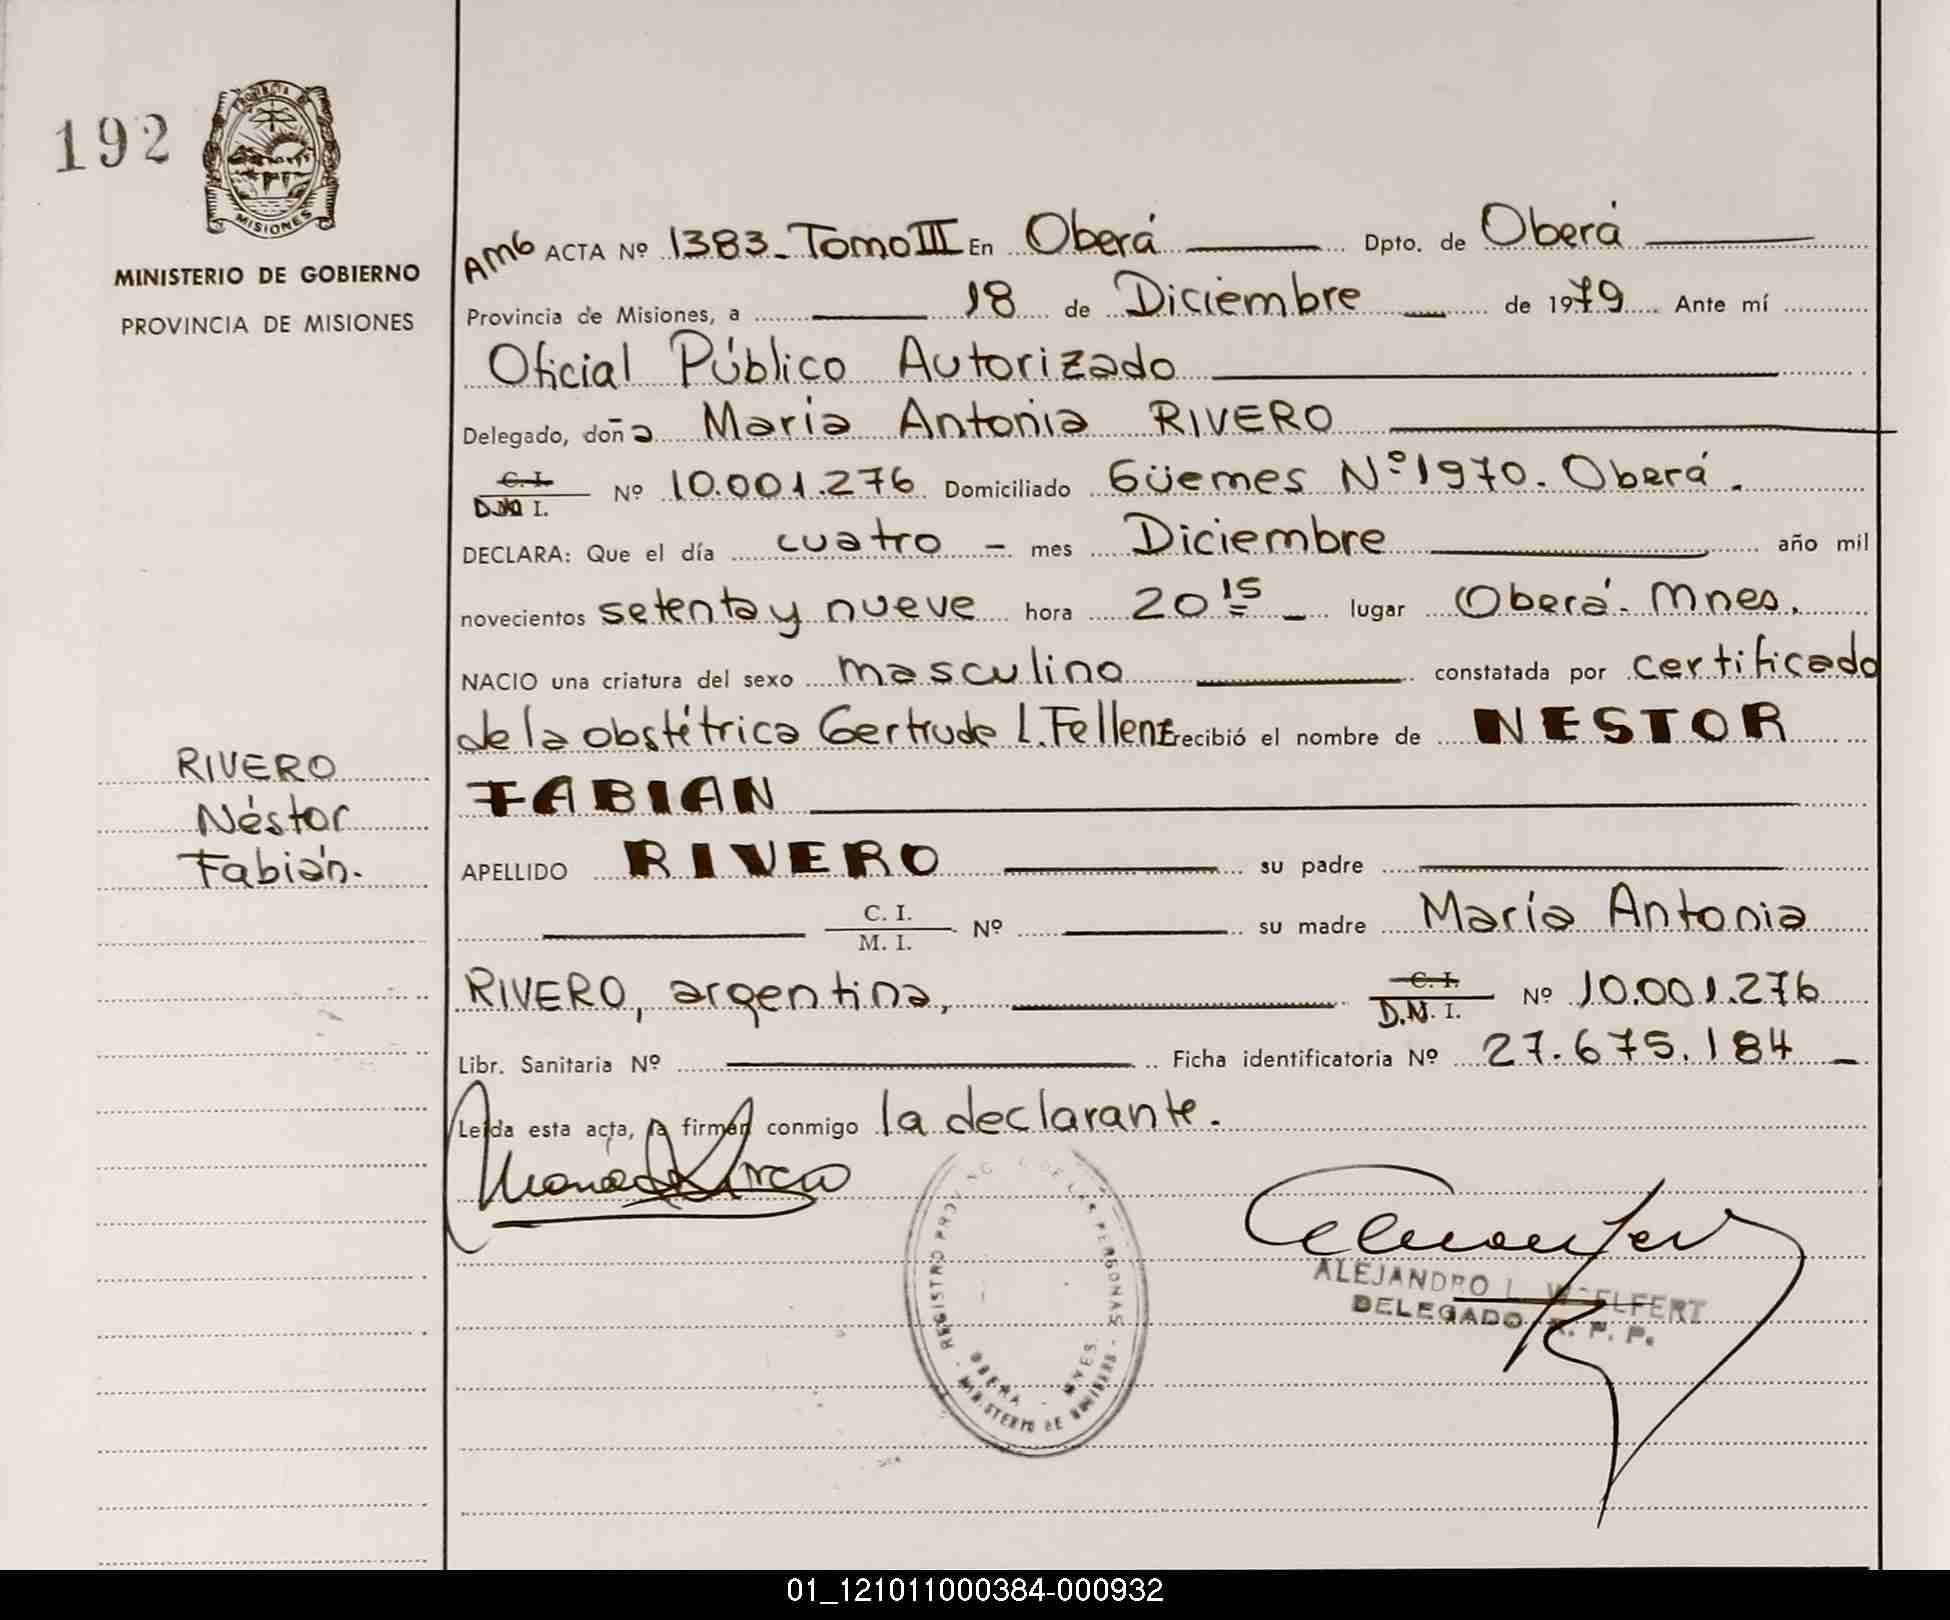 192
PROVINCIA DE
MISIONES
MINISTERIO DE GOBIERNO
PROVINCIA DE MISIONES
RIVERO
Néstor
Fabián.
AMG ACTA Nº 1383_ Tomo III En Oberá Dpto. de Oberá
Provincia de Misiones, a 18 de Diciembre de 1979 Ante mí
Oficial Público Autorizado
Delegado, doña María Antonia RIVERO
C. I.
D.M. I. Nº 10.001.276 Domiciliado Güemes Nº 1970. Oberá.
DECLARA: Que el día cuatro – mes Diciembre año mil
novecientos setenta y nueve hora 20 15 lugar Oberá. Mnes.
NACIO una criatura del sexo masculino constatada por certificado
de la obstétrica Gertrude L. Fellenz recibió el nombre de NESTOR
FABIAN
APELLIDO RIVERO su padre
C. I.
M. I. Nº su madre María Antonia
RIVERO, argentina, C. I.
D.M. I. Nº 10.001.276
Libr. Sanitaria Nº Ficha identificatoria Nº 27.675.184
Leída esta acta, la firman conmigo la declarante.
REGISTRO PROVINC DE LAS PERSONAS
OBERA - MNES.
MINISTERIO DE
ALEJANDRO L. WOELFERT
DELEGADO R. P. P.
01_121011000384-000932